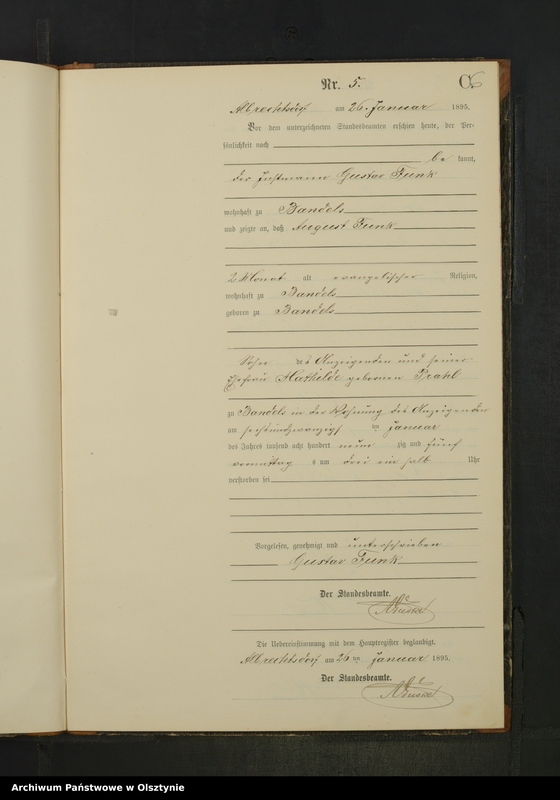 Nr. 5.
C.
Albrechtsdorf am 26. Januar 1895.
Vor dem unterzeichneten Standesbeamten erschien heute, der Per-
sönlichkeit nach
be kannt,
der Instmann Gustav Funk
wohnhaft zu Bandels
und zeigte an, daß August Funk
2 Monat alt evangelischer Religion,
wohnhaft zu Bandels
geboren zu Bandels
Sohn des Anzeigenden und seiner
Ehefrau Mathilde geborenen
zu Bandels in der Wohnung des Anzeigenden
am sechsundzwanzigsten Januar
des Jahres tausend acht hundert neun zig und fünf
vormittag s um drei ein halb Uhr
verstorben sei
Vorgelesen, genehmigt und unterschrieben
Gustav Funk
Der Standesbeamte.
Die Uebereinstimmung mit dem Hauptregister beglaubigt.
Albrechtsdorf am 26 ten Januar 1895.
Der Standesbeamte.
Archiwum Państwowe w Olsztynie